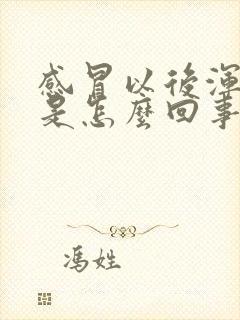 感冒以後渾
是怎麼回事
馮姓